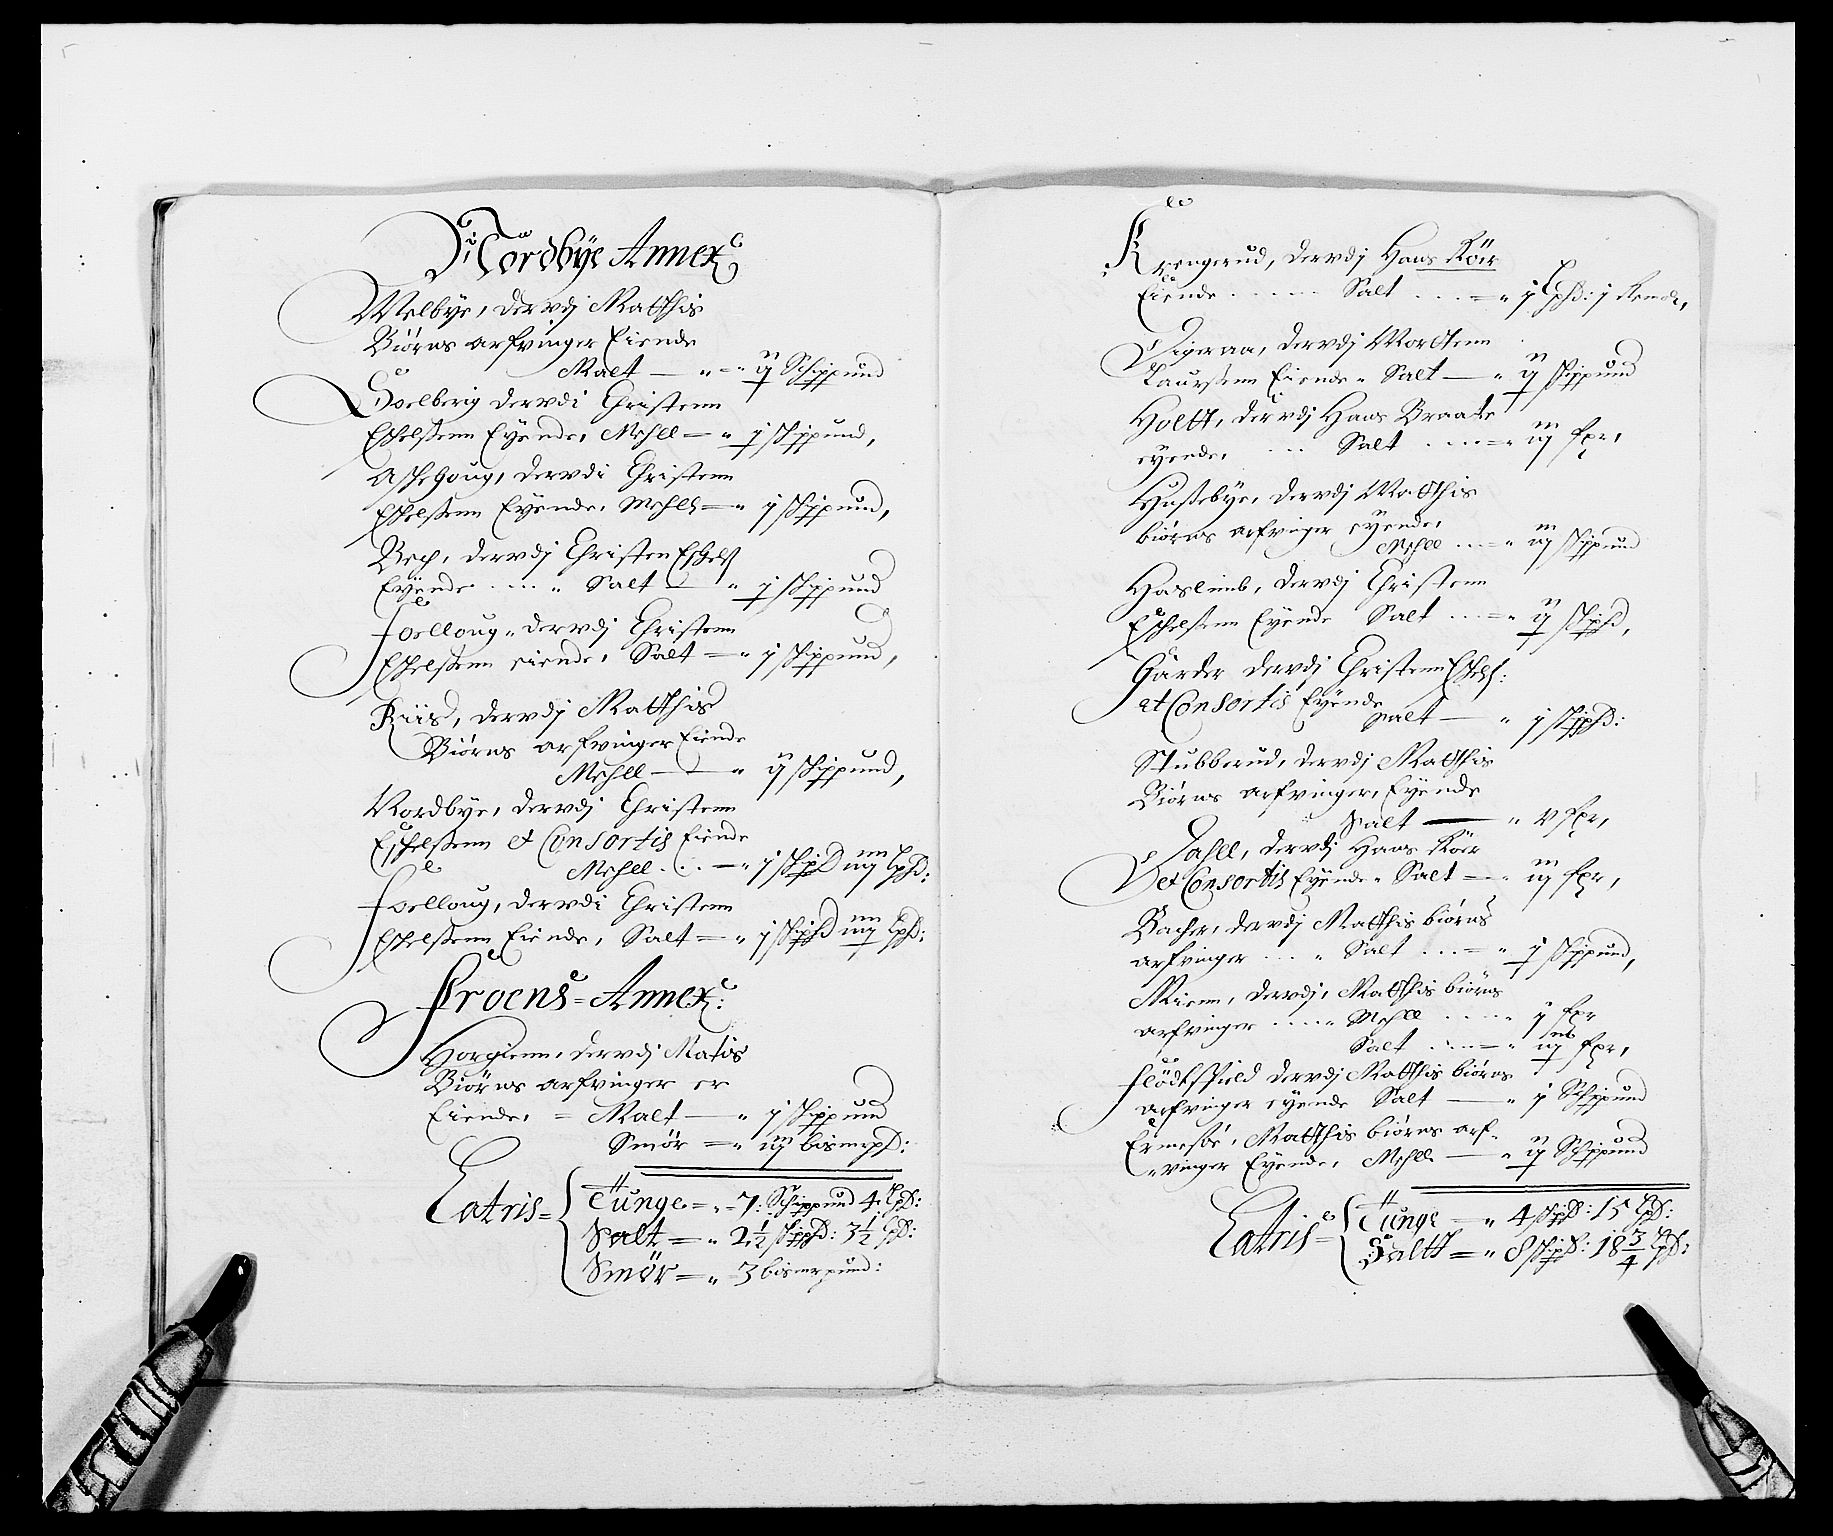 Nordbÿe Annex
Welbÿe, derudj Matthis
Biørns arfvinger Eiende
Malt — ij Schippund
Soelberig derudi Christenn
Eschelsenn Eÿende, Mehll = j skippund,
Askehoug, derudi Christenn
Eschelsenn Eÿende, Mehll = j skippund,
Bech, derudj Christen Eschels
Eÿende .... Salt — j skippund
foelloug, derudj Christenn
Eschelsenn eiende, Salt = j skippund,
Riis, derudj Matthis
Biørns arfvinger Eiende
Mehll — ij skippund,
Nordbÿe, derudj Christenn
Eschelsenn et Consortis Eiende
Mehll . . — j skip℔ iiij Lp℔:
foelloug, derudi Christenn
Eschelsenn Eiende, Salt = j skip℔ iiij Lp℔:
Froens = Annex:
Horgienn, derudj Matis
Biørns arfvinger er
Eiende, = Malt — j skippund
Smør = iij bismerp℔:
Latris =
Tunge = 7: Schippund 4: Lp℔:
Salt = 2½ skip℔: 3½ Lp℔:
Smør = 3 bismerpund:
Krengerud, derudj Hans Köır
Eiende ..... Salt ... = j Lp℔: j Remb,
Digeraa, derudj Mortenn
Laurssenn Eiende Salt — ij skippund
Holtt, derudj Hans Braate
eÿende, ... Salt .... = iij fɣr,
Hustebÿe, derudj Matthis
biørns arfvinger eÿende,
Mehll ... = iij skippund
Haslimb, derudj Christenn
Eschelsenn Eÿende Salt ... = ij skip℔,
Garder derudj Christenn Eschels:
et Consortis Eÿende
Salt — j skip℔:
Stubberud, derudj Matthis
Biørns arfvinger, Eÿende
Salt — v fɣr,
Dahll, derudj Hans Köır
et Consortis Eÿende Salt — iij fɣr,
Bacher, derudj Matthis biørns
arfvinger ... Salt ... = j skippund,
Mienn, derudj, Matthis biørns
arfvinger .... Mehll .... j fɣr
Salt .... = fɣr,
flödtspield derudj Matthis biørns
arfvinger eÿende Salt — j Schippund
Ermesbÿe, Matthis biørns arf-
vinger Eÿende, Mehll — ij Schippund
Latris =
Tunge = 4 skip℔: 15 Lp℔:
Saltt = 8 skip℔: 18¾ Lp℔: